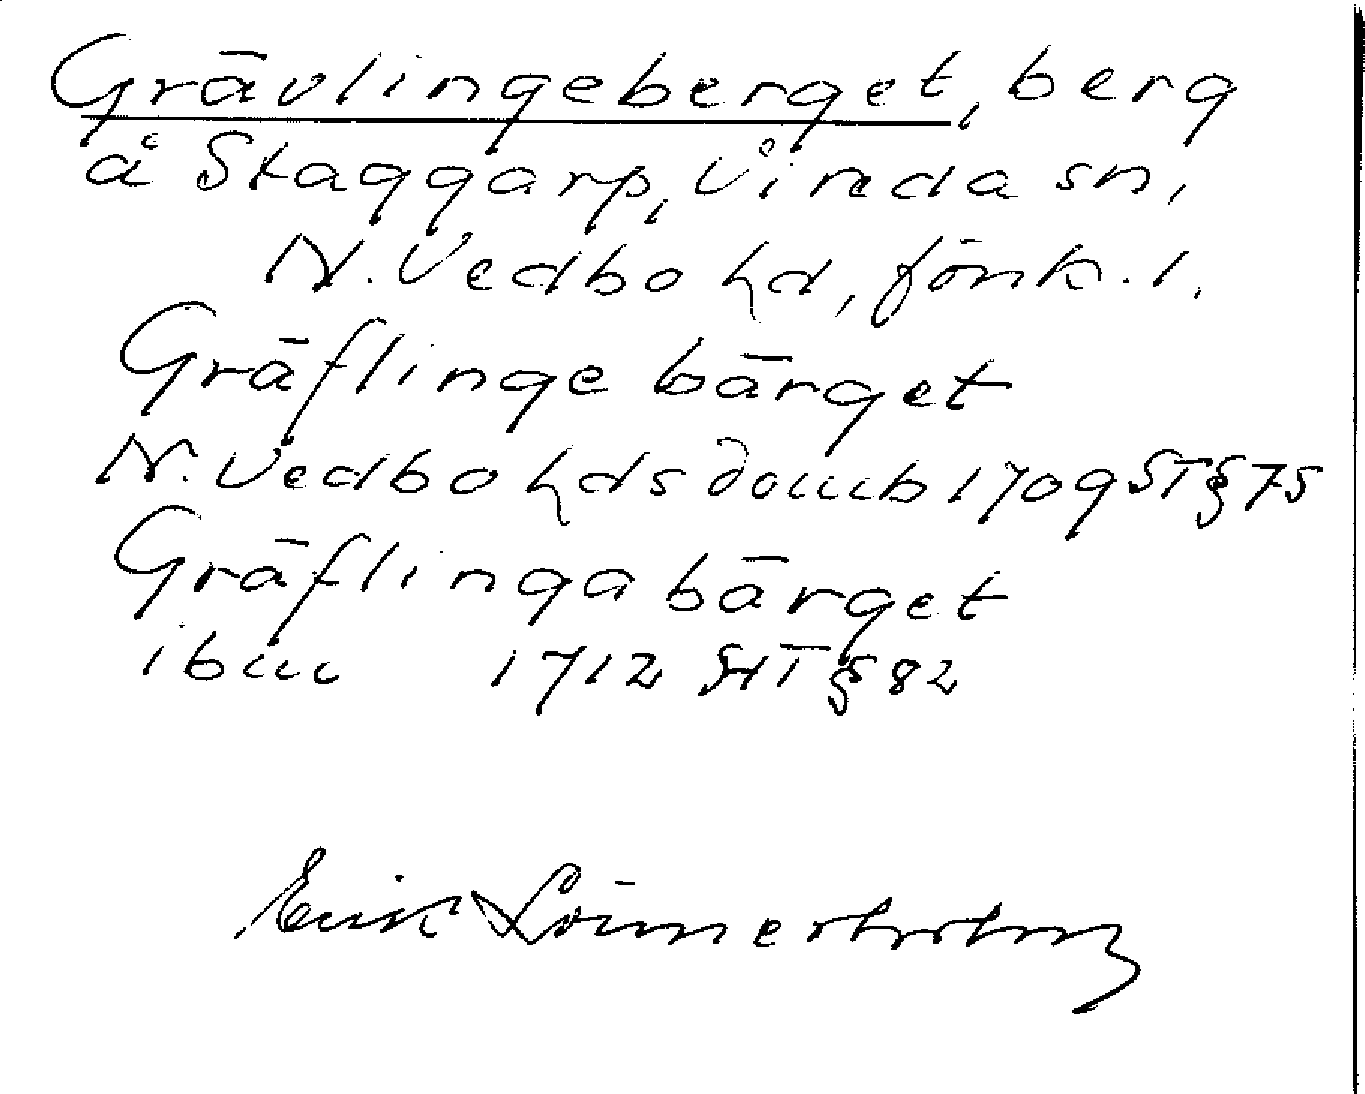 Grävlingeberget, berg
å Staggarp, Vireda sn,
N. Vedbo hd, Jönk. l.
Gräflinge bärget
N. Vedbo hds domb 1709 ST § 75
Gräflinga bärget
ibm 1712 HT § 82
Erik